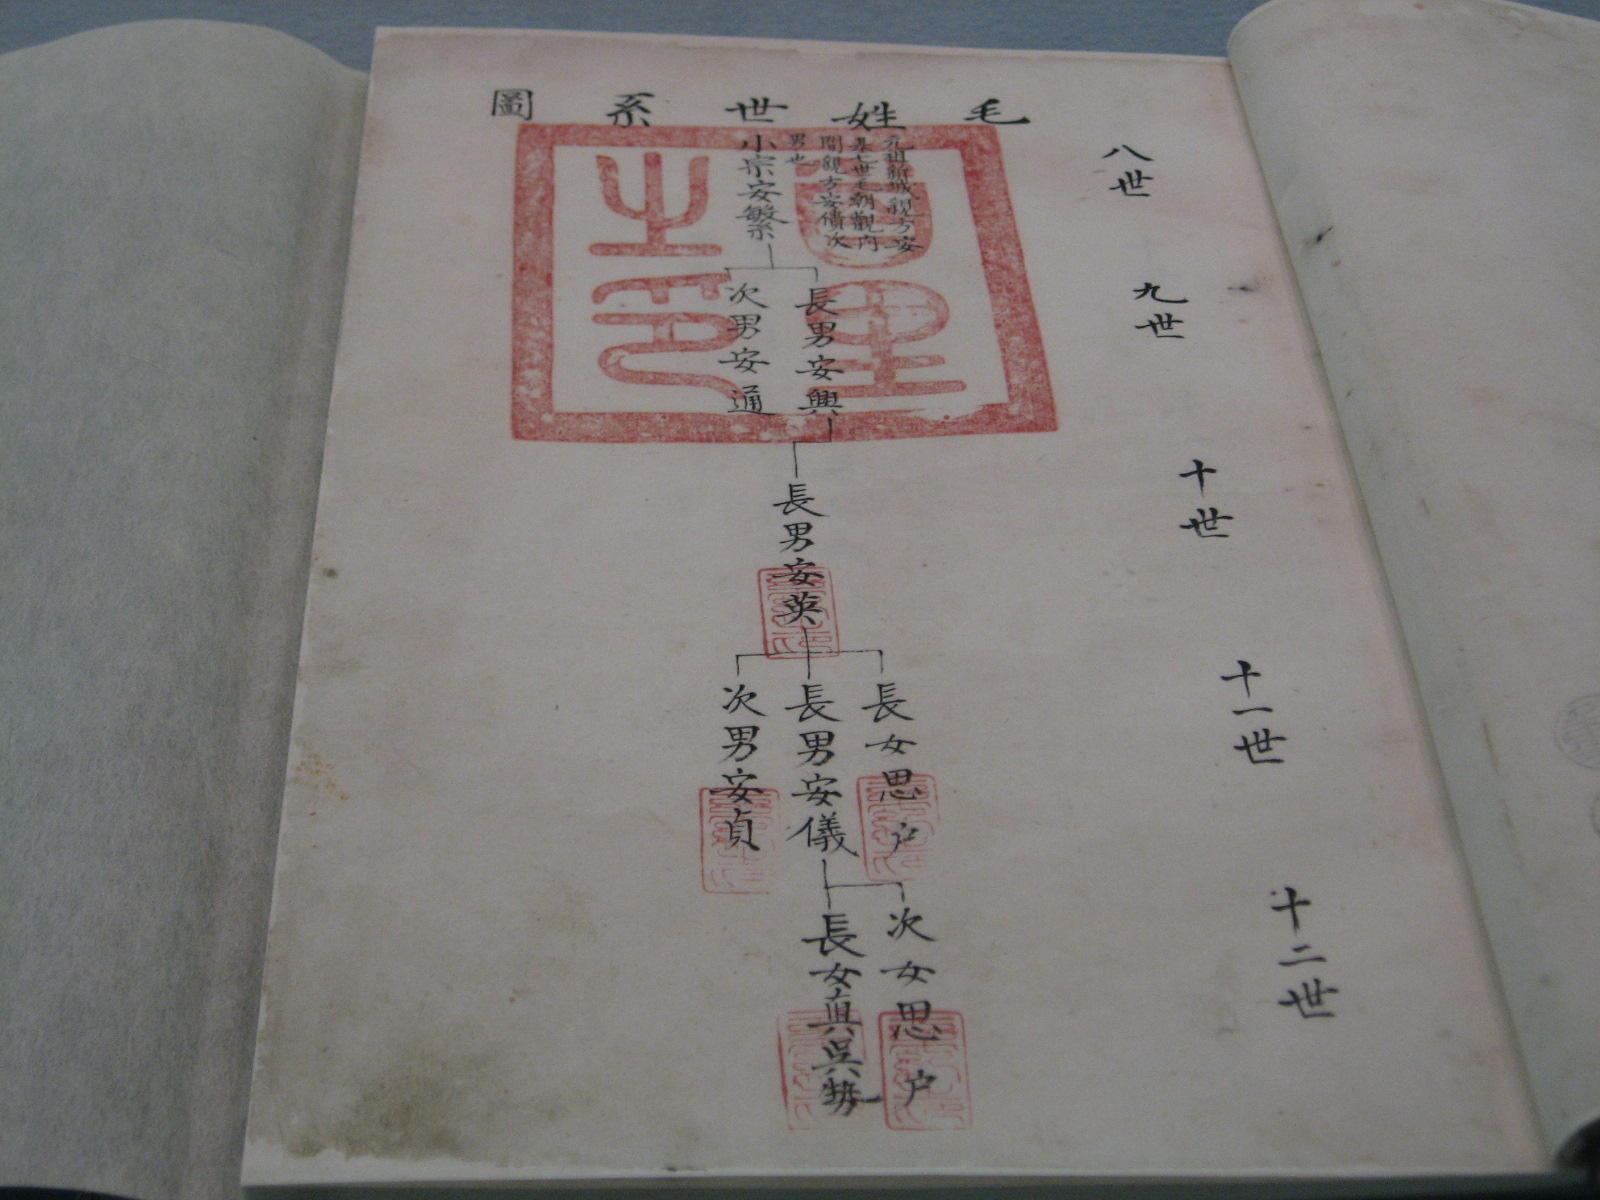 毛姓世系圖
八世
九世
十世
十一世
十二世
元祖新城親方安
基七世毛朝觀内
間親方安債次
男也
小宗安繁
長男安興
次男安通
長男安英
長女思戶
長男安儀
次男安貞
次女思戶
長女真吳勢
首里之印